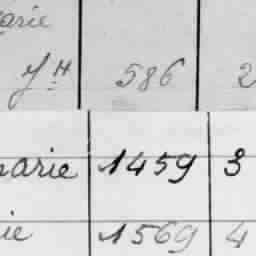 arie
J H 586 2
arie 1459 3
ie 1569 4